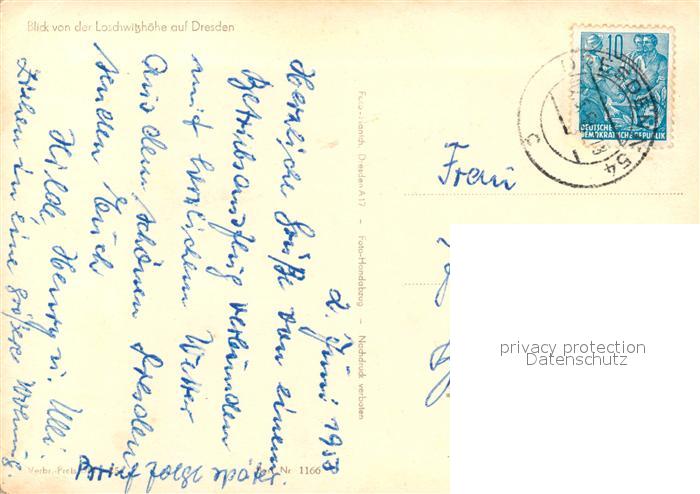 Blick von der Loschwitzhöhe auf Dresden
2. Juni 1958
Herzliche Grüße von einem
Betriebsausflug verbunden
mit herzlichem Wetter
Aus dem schönen Dresden
senden Euch
Hilde, Henry u. Ulli.
Ziehen in eine größere Wohnung.
Brief folgt später.
Foto-Handabzug – Nachdruck verboten
Dresden A 17
Nr 1166
Frau
10
DEUTSCHE
DEMOKRATISCHE REPUBLIK
DRESDEN
54
privacy protection
Datenschutz